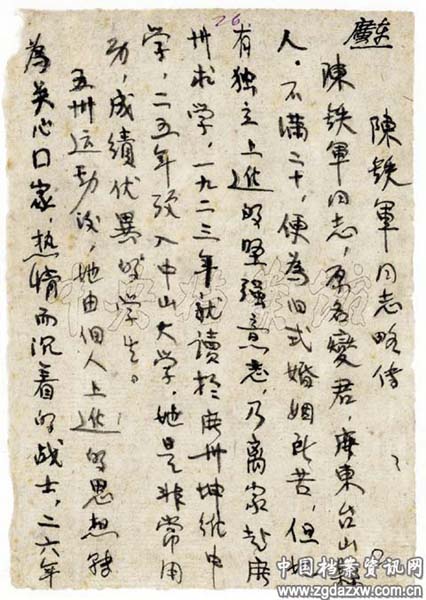 26
廣東
陳铁軍同志略传
陳铁軍同志，原名燮君，廣東台山縣
人。不滿二十，便為旧式婚姻所苦，但
有独立上進的坚强意志，乃离家赴廣
州求学，一九二三年就讀於廣州坤维中
学，二五年预入中山大学，她是非常用
功，成績优異的学生。
五卅运动後，她由個人上進的思想轉
為关心囗家，热情而沉着的战士，二六年
中央档案館
中国档案资讯网
www.zgdazxw.com.cn